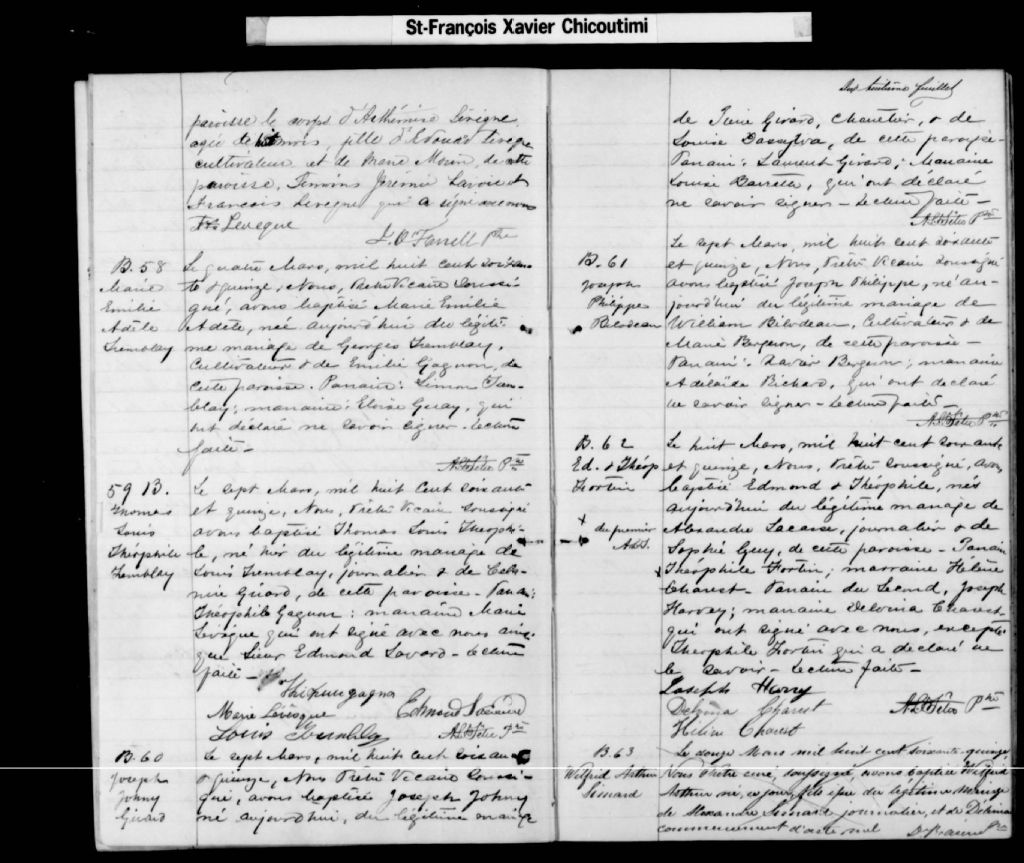 St-François Xavier Chicoutimi
paroisse le corps d'Arthémise Lévêque
agée de mois, fille d'Edouard Levêque
cultivateur et de Marie Morin, de cette
paroisse. Temoins Jérémie Lavoie et
François Leveque qui a signé avec nous
Frs Leveque
J. O'Farrell Ptre
B. 58
Marie
Emilie
Adèle
Tremblay
Le quatre Mars, mil huit cent soixan-
te & quinze, Nous, Prêtre Vicaire soussi-
gné, avons baptisé Marie Emilie
Adèle, née aujourd'hui du légiti-
me mariage de Georges Tremblay,
Cultivateur & de Emilie Gagnon, de
cette paroisse. Parrain: Simon Trem-
blay; marraine: Eloïse Guay, qui
ont déclaré ne savoir signer. Lecture
faite -
Ptre
59 B.
Thomas
Louis
Théophile
Tremblay
Le sept Mars, mil huit cent soixante
et quinze, Nous, Prêtre Vicaire soussigné
avons baptisé Thomas Louis Théophi-
le, né hier du légitime mariage de
Louis Tremblay, journalier & de
Girard, de cette paroisse - Parrain:
Théophile Gagnon: marraine Marie
Levêque qui ont signé avec nous ainsi
que Sieur Edmond Savard - Lecture
faite -
Marie Lévesque
Edmond Savard
Louis Trembley
Ptre
B. 60
Joseph
Johny
Girard
Le sept Mars, mil huit cent soixante
& quinze, Nous Prêtre Vicaire soussi-
gné, avons baptisé Joseph Johny
né aujourd'hui, du légitime mariage
feuillet
de Girard, Charretier, & de
Louise Dassylva, de cette paroisse -
Parrain: Laurent Girard; Marraine
Louise Barrette, qui ont déclaré
ne savoir signer - Lecture faite -
Ptre
B. 61
Joseph
Philippe
Bilodeau
Le sept Mars, mil huit cent soixante
et quinze, Nous, Prêtre Vicaire soussigné
avons baptisé Joseph Philippe, né au-
jourd'hui du légitime mariage de
William Bilodeau, Cultivateur & de
Marie Bergeron, de cette paroisse -
Parrain: Xavier Bergeron; marraine
Adelaïde Richard, qui ont déclaré
ne savoir signer - Lecture faite
Ptre
B. 62
Ed. & Théop
Fortin
x du premier
Le huit Mars, mil huit cent soixante
et quinze, Nous, Prêtre soussigné, avons
baptisé Edmond & Théophile, nés
aujourd'hui du légitime mariage de
Alexandre Lacasse, journalier & de
Sophie Guy, de cette paroisse - Parrain
x Théophile Fortin; marraine Hélène
Charest - Parrain du Second, Joseph
Harvey; marraine Delvina Charest
qui ont signé avec nous, excepté
Théophile Fortin qui a déclaré ne
le savoir - Lecture faite -
Joseph Harvy
Delvina Charest
Ptre
Hélène Charest
B. 63
Wilfrid Arthur
Simard
Le douze Mars mil huit cent soixante-quinze
Nous Prêtre curé, soussigné, avons baptisé Wilfrid
Arthur né, ce jour, fils issu du légitime mariage
de Alexandre Simard journalier, et de
commencement d'acte nul
Ptre